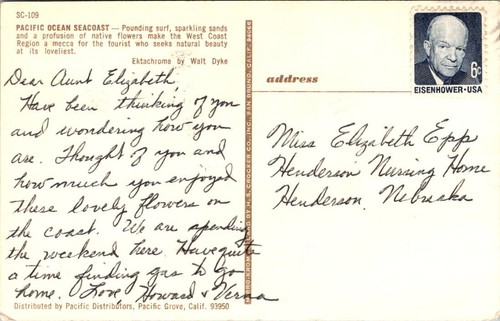 SC-109
PACIFIC OCEAN SEACOAST — Pounding surf, sparkling sands
and a profusion of native flowers make the West Coast
Region a mecca for the tourist who seeks natural beauty
at its loveliest.
Ektachrome by Walt Dyke
Dear Aunt Elizabeth,
Have been thinking of you
and wondering how you
are. Thought of you and
how much you enjoyed
these lovely flowers on
the coast. We are spending
the weekend here. Have quite
a time finding gas to go
home. Love, Howard & Verna
Distributed by Pacific Distributors, Pacific Grove, Calif. 93950
PUBLISHED BY H.S. CROCKER CO., INC., SAN BRUNO, CALIF. 94066
address
6c
EISENHOWER·USA
Miss Elizabeth Epp
Henderson Nursing Home
Henderson, Nebraska